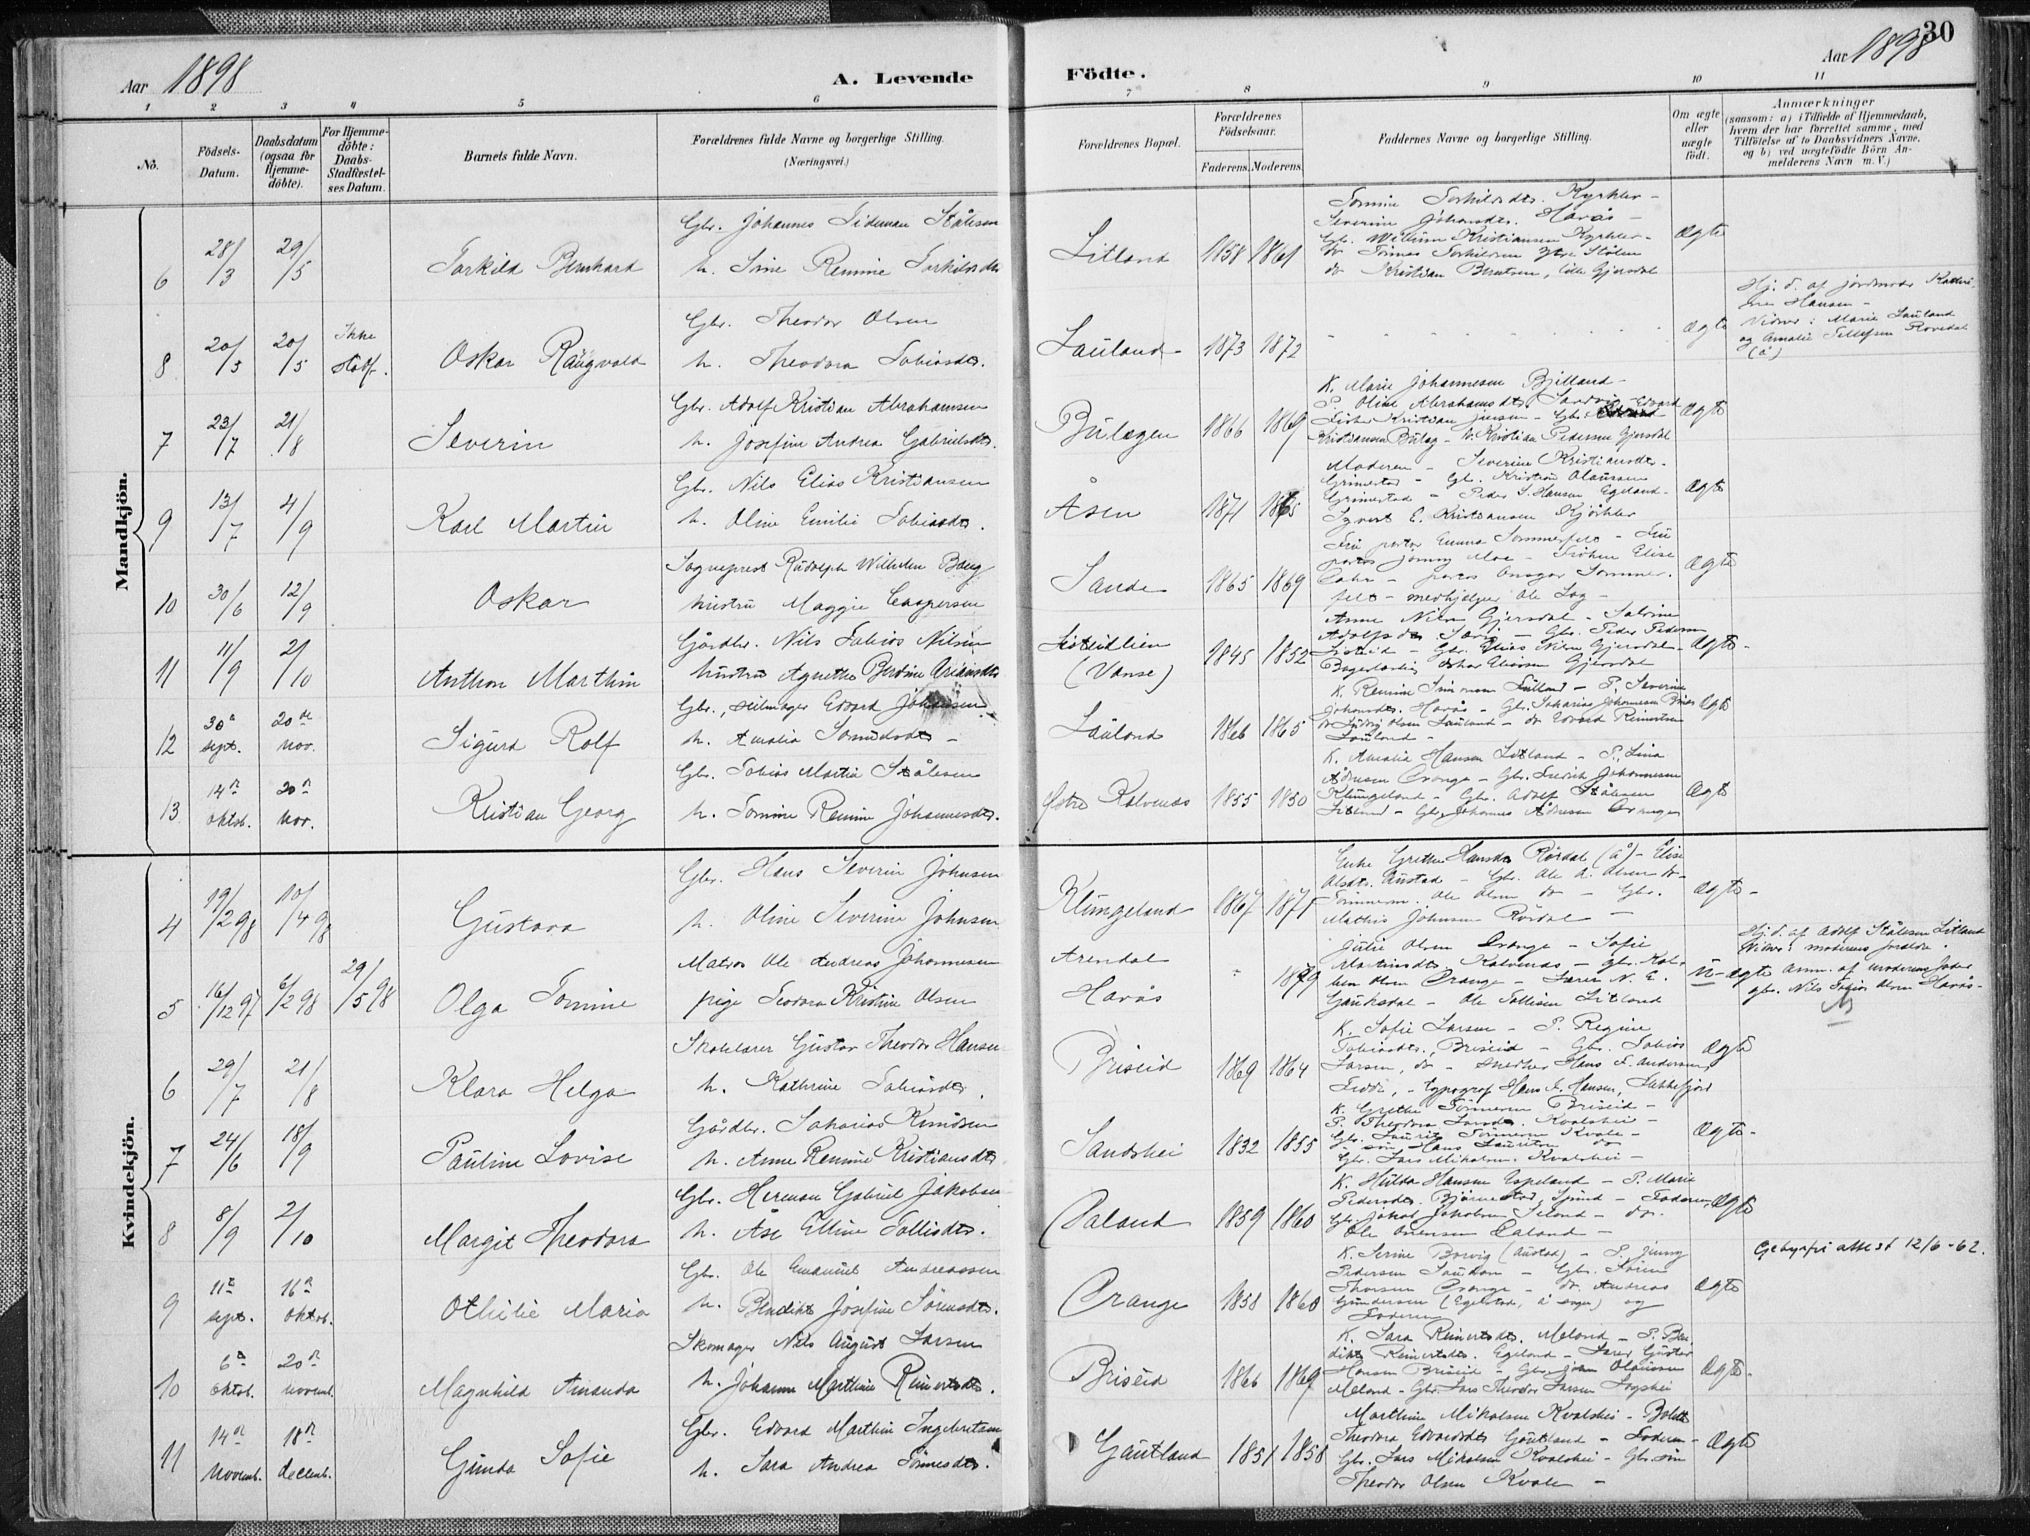 30
Aar 1898 A. Levende Födte. Aar 1898
1 2 3 4 5 6 7 8 9 10 11
No.
Födsels-Datum.
Daabsdatum (ogsaa for Hjemme-döbte).
For Hjemme-döbte: Daabs-Stadfæstel-ses Datum.
Barnets fulde Navn.
Forældrenes fulde Navne og borgerlige Stilling.
(Næringsvei.)
Forældrenes Bopæl.
Forældrenes Födselsaar.
Faderens. Moderens.
Faddernes Navne og borgerlige Stilling.
Om ægte eller uægte födt.
Anmærkninger
(saasom: a) i Tilfælde af Hjemmedaab,
hvem der har forrettet samme, med
Tilföielse af to Daabsvidners Navne,
og b) ved uægtefödte Börn An-
melderens Navn m. V.)
Mandkjön.
6 28/3 29/5 Torkild Bernhard
Gbr. Johannes Tideman Stålesen
h. Sine Remine Torkildsdtr
Litland 1858 1861
Tomine Torkildsdtr. Kyrkler -
Severine Johansdtr. Havås -
Gbr. Wilhelm Kristiansen Kyrkler -
do Tönnes Torkildsen
do Kristian Berntsen, lille Gjersdal
Ægte
8 20/5 20/5 Ikke Stadf. Oskar Ragvald
Gbr. Theodor Olsen
h. Theodora Tobiasdtr.
Lauland 1873 1872
Ægte
Hj. d. af jordmoder Kathri-
ne Hansen -
Vidner: Marie Lauland
og Amalie Tellefsen Rovedal
(å)
7 23/7 21/8 Severin
Gbr. Adolf Kristian Abrahamsen
h. Josefine Andrea Gabrielsdtr.
Bulægen 1866 1869
K. Marie Johannesen Bjelland -
P. Oline Abrahamsdtr. Sandvig - Edvard
Fisker Kristian Jensen - Gbr.
Kristiansen Bulæg - U. Kristian Pedersen Gjersdal
Ægte
9 13/7 4/9 Karl Martin
Gbr. Nils Elias Kristiansen
h. Oline Emilie Tobiasdtr.
Åsen 1871 1865
Moderen - Severine Kristiansdtr.
Grimestad - Gb. Kristian Olaussen
Grimestad - Peder S. Hansen Egeland -
Syvert E. Kristiansen Kjörkler
Ægte
10 30/6 12/9 Oskar
Sogneprest Rudolph Wilhelm Bang
hustru Maggie Caspersen
Sande 1865 1869
Fru pastor Emma Sommerfelt - Fru
pastor Jenny Moe - Fröken Elise
- pastor Ansgar Sommer-
felt - medhjelper Ole Log -
Ægte
11 11/9 2/10 Anthon Marthin
Gårdbr. Nils Tobias Nilsen
hustru Agnethe Berdine
Listeidlien
(Vanse) 1845 1852
Anne Nilsen Gjersdal - Salvine
Adolfsdtr - Gbr. Peder Pedersen
Listeid - Gbr. Elias Nilsen Gjersdal -
Oskar Eliassen Gjersdal
Ægte -
12 30te sept. 20de nov. Sigurd Rolf
Gbr., seilmager Edvard Johansen
h. Amalia Samuelsdtr -
Lauland 1866 1865
K. Remine Lauland - P. Severine
Johansdtr. Havås - Gbr. Sakarias Johannesen
do Ludvig Olsen Lauland - do Edvard Reinertsen
Lauland -
Ægte
13 14de oktob. 20de nov. Kristian Georg
Gbr. Tobias Martin Stålesen
h. Tomine Remine Johannesdtr.
Östre Kalvenes 1855 1850
K. Amalia Hansen Litland - P. Lina
Ådnesen Orange - Gbr. Fredrik Johannesen
Klungeland - Gbr. Adolf Stålesen
Litland - Gbr. Johannes Ådnesen Drange
Ægte
Kvindekjön.
4 19/2 98 10/4 98 Gustava
Gbr. Hans Severin Johnsen
h. Oline Severine Johnsen
Klungeland 1867 1871
Enke Grethe Hansdtr Rördal (å) - Elise
Olsdtr. Austad - Gbr. Ole A. Olsen do -
Tömmerm. Ole Olsen do - Gbr.
Mathis Johnsen Rördal -
Ægte -
5 16/12 97 6/2 98 29/5 98 Olga Tomine
Matros Ole Andreas Johannesen
pige Teodora Kristine Olsen
Arendal
Havås - 1879
Julie Olsen Drange - Sofie
Martinsdtr. Kalvenes - Gbr.
Olsen Drange - Lærer N. E.
Gauksdal - Ole Tollisen Litland
U-ægte
Hj. d. af Adolf Stålesen Litland
Vidner: moderens foreldre.
anm. af moderens fader
gbr. Nils Tobias Olsen Havås -
6 29/7 21/8 Klara Helga
Skolelærer Gustav Theodor Hansen
h. Kathrine Tobiasdtr.
Briseid 1869 1864
K. Sofie Larsen - P. Regine
Tobiasdtr., Briseid - Gbr. Tobias
Larsen, do - Snedker Hans F. Andersen,
Fedde, typograf Hans F. Hansen, Flekkefjord
Ægte
7 24/6 18/9 Pauline Lovise
Gårdbr. Sakarias Knudsen
h. Anne Remine Kristiansdtr
Sandshei 1832 1855
K. Grethe Tönnesen Briseid -
P. Theodora Larsdtr. Kvalshei -
Gbr. Laurits Tönnesen Kvale -
do sön Hans Lauritsen do
Gbr. Lars Mikalsen Kvalshei -
Ægte -
8 8/9 2/10 Margit Theodora
Gbr. Herman Gabriel Jakobsen
h. Åse Elline Tollisdtr.
Øaland 1859 1860
K. Hulda Hansen Espeland - P. Marie
Pedersdtr. Björnestad, Spind - Faderen,
Gbr. Jakob Jakobsen Seland - do.
Ole Øaland -
Ægte
Gebyrfri attest 12/6-62.
9 11te sept. 16de oktob. Othilie Maria
Gbr. Ole Emanuel Andreassen
h. Bendikte Josefine Sörensdtr.
Drange 1858 1860
K. Serine Borvig (Austad) - P. Jenny
Pedersen - Gbr. Sören
Thorsen Drange - do. Andreas
Gundersen (Egelstad, å sogn) og
Faderen
Ægte
10 6te oktob. 20de novemb. Magnhild Amanda
Skomager Nils August Larsen
h. Johanne Marthine Reinertsdtr.
Briseid 1866 1869
K. Sara Reinertsdtr. Meland - P. Ben-
dikte Reinertsdtr. Egeland - Lærer Gustav
Hansen Briseid - Gbr. Johan Olaussen
Meland - Gbr. Lars Theodor Larsen Logshei
Ægte -
11 14de novemb. 18de decemb. Gunda Sofie
Gbr. Edvard Marthin Ingebretsen
h. Sara Andrea Tönnesdtr.
Gautland 1851 1858
Marthine Mikalsen Kvalshei - Bolette
Theodora Edvardsdtr Gautland - Faderen -
Gbr. Lars Mikalsen Kvalshei - Gbr. sön
Theodor Olsen Kvale -
Ægte